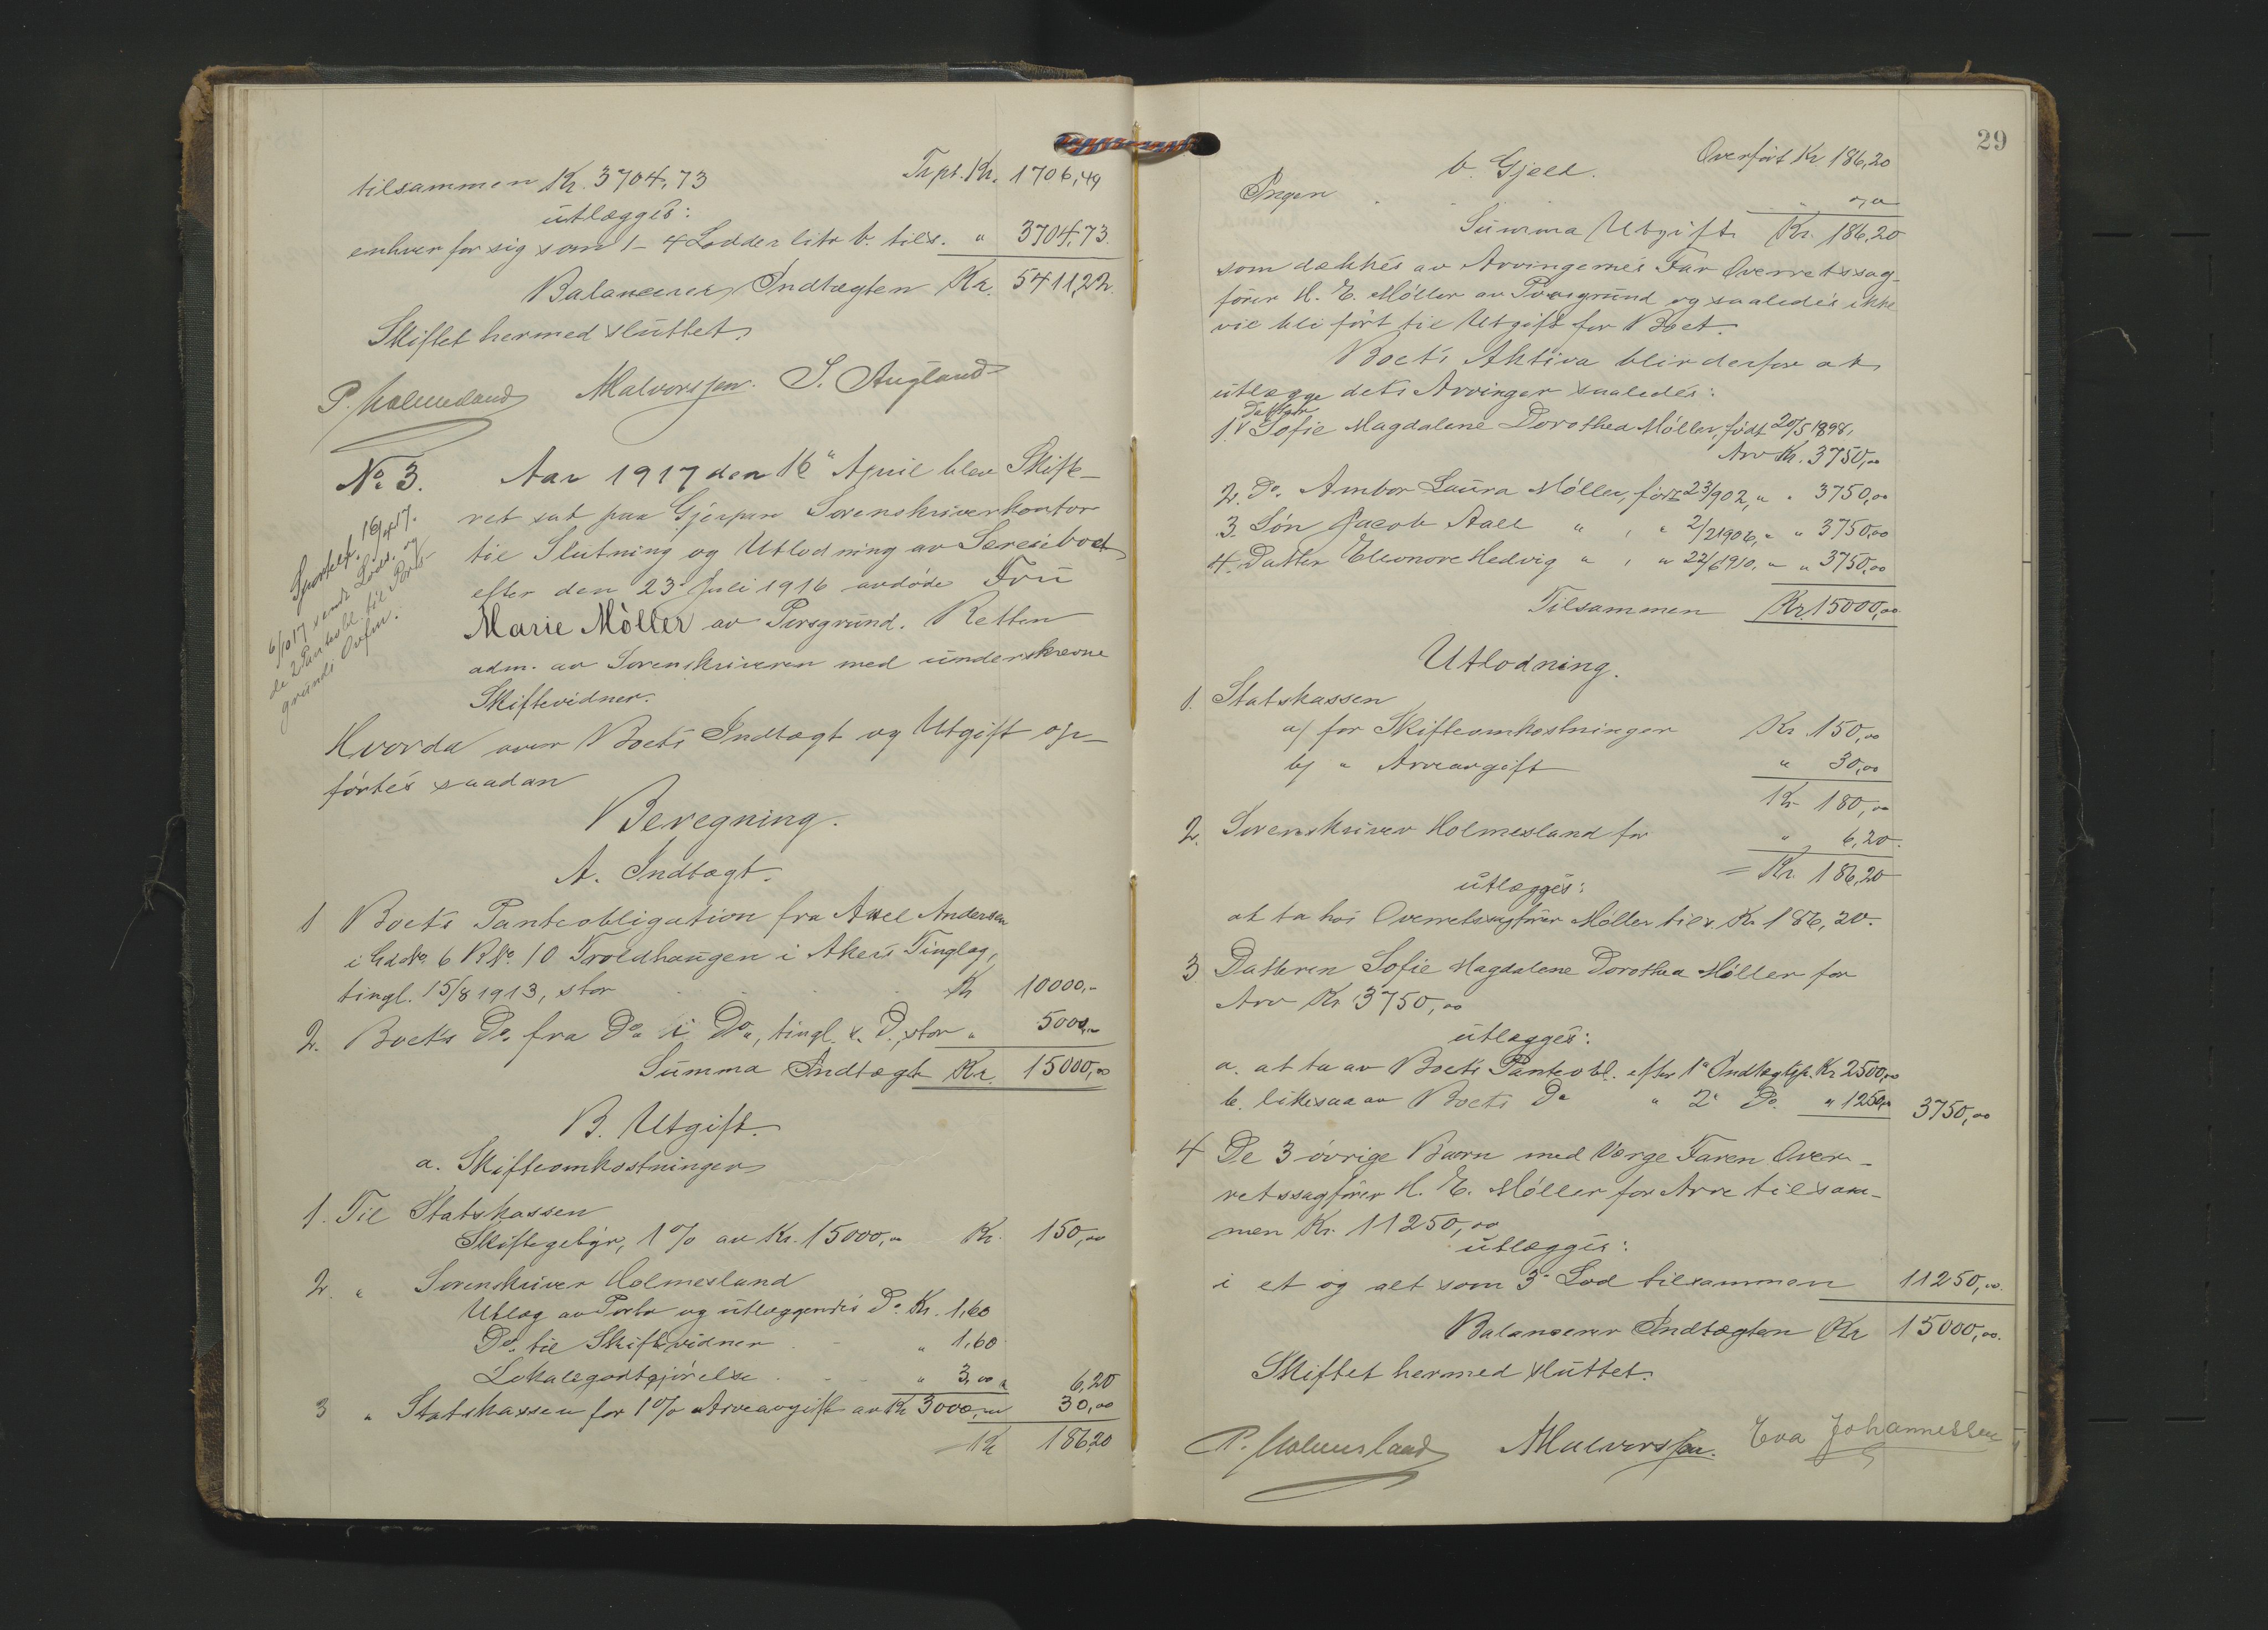 tilsammen Kr. 3704,73 Trpt. Kr. 1706,49
utlægges:
enhver for sig som 1- 4 Lodder litr b. tils. " 3704,73.
Balancerer Indtægten Kr. 5411,22.
Skiftet hermed sluttet.
P. Holmesland AHalvorssen. S. Augland
No 3. Aar 1917 den 16" April blev Skifte-
ret sat paa Gjerpen Sorenskriverkontor
til Slutning og Utlodning av Særeieboet
efter den 23 Juli 1916 avdøde Fru
Marie Møller av Porsgrund. Retten
adm. av Sorenskriveren med underskrevne
Skiftevidner.
Sportelf. 16/4 17.
6/10 17 sendt Lods. og
de 2 Panteobl. til Pors-
grunds Ovfm.
Hvorda over Boets Indtægt og Utgift op-
førtes saadan
Beregning.
A. Indtægt.
1 Boets Panteobligation fra Axel Andersen
i Gd No. 6 B No. 10 Troldhaugen i Akers Tinglag,
tingl. 15/8 1913, stor Kr 10000,-
2. Boets Do. fra Do i Do, tingl. s. D., stor " 5000,-
Summa Indtægt Kr. 15000,00
B. Utgift.
a. Skifteomkostninger
1. Til Statskassen
Skiftegebyr, 1% av Kr. 15000,00 Kr. 150,00
2. " Sorenskriver Holmesland
Utlæg av Porto og utlæggendes Do. Kr. 1,60
Do. til Skiftevidner " 1,60
Lokalegodtgjørelse " 3,00 " 6,20
3 " Statskassen for 1% Arveavgift av Kr 3000,00 30,00
Kr 186,20
29
Overført Kr 186,20
b. Gjeld.
Ingen " 0,00
Summa Utgift Kr. 186,20
som dækkes av Arvingernes Far Overretssag-
fører H. E. Møller av Porsgrund og saaledes ikke
vil bli ført til Utgift for Boet.
Boets Aktiva blir derfor at
utlægge dets Arvinger saaledes:
Datter
1. Sofie Magdalene Dorothea Møller, født 20/5 1898,
Arv Kr. 3750,00
2. Do. Ambor Laura Møller, født 23/ 902, " " 3750,00
3. Søn Jacob Aall " , " 2/2 1906, " " 3750,00
4. Datter Eleonore Hedvig " , " 22/6 1910, " " 3750,00
Tilsammen Kr. 15000,00
Utlodning.
1. Statskassen
a/ for Skifteomkostninger Kr. 150,00
b/ " Arveavgift " 30,00
Kr. 180,00
2. Sorenskriver Holmesland for " 6,20.
= Kr. 186,20
utlægges:
at ta hos Overretssagfører Møller tils. Kr. 186,20.
3. Datteren Sofie Magdalene Dorothea Møller for
Arv Kr 3750,00
utlægges:
a. at ta av Boets Panteobl. efter 1" Indtægtsp. Kr. 2500,00
b. likesaa av Boets Do " 2" Do. " 1250,00 3750,00
4 De 3 øvrige Barn med Værge Faren Over-
retssagfører H. E. Møller for Arve tilsam-
men Kr. 11250,00
utlægges:
i et og alt som 3" Lod tilsammen 11250,00.
Balancerer Indtægten Kr 15000,00.
Skiftet hermed sluttet.
P. Holmesland AHalvorssen. Eva Johannessen